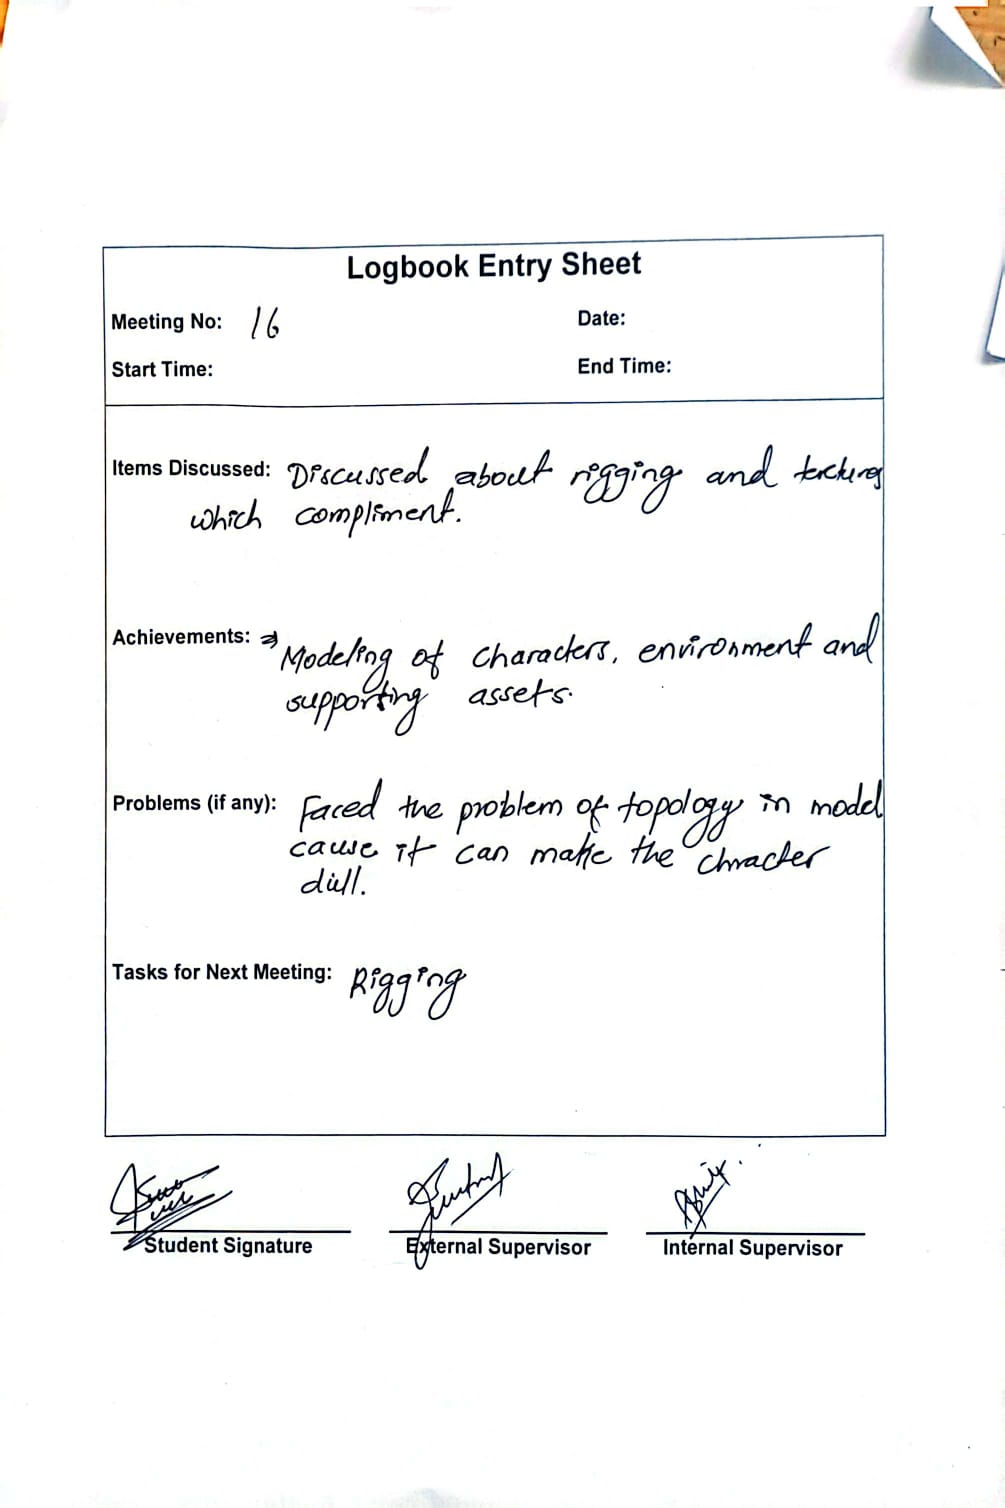 Logbook Entry Sheet
Meeting No: 16
Date:
Start Time:
End Time:
Items Discussed: Discussed about rigging and textures
which compliment.
Achievements: → Modeling of characters, environment and
supporting assets.
Problems (if any): Faced the problem of topology in model
cause it can make the chracter
dull.
Tasks for Next Meeting: Rigging
Student Signature
External Supervisor
Internal Supervisor